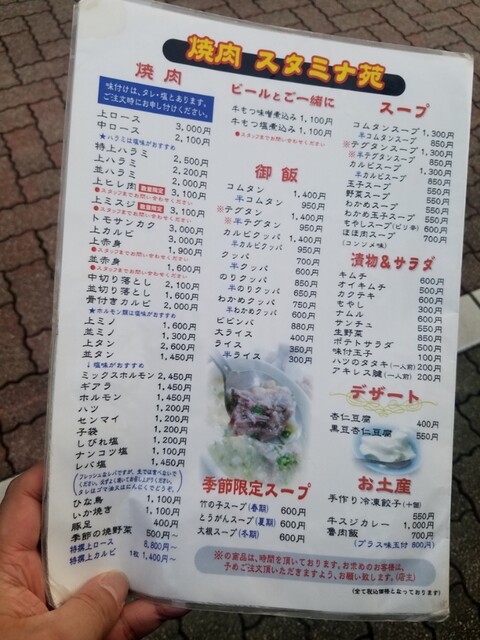 焼肉 スタミナ苑
焼肉
味付けは、タレ・塩とあります。
ご注文時にお申し付けください。
上ロース 3,000円
中ロース 2,100円
★ハラミは塩味がおすすめ
特上ハラミ 2,500円
上ハラミ 2,200円
並ハラミ 2,000円
上ヒレ肉 数量限定 3,100円
●スタッフまでお問い合わせください
上ミスジ 数量限定 3,100円
●スタッフまでお問い合わせください
トモサンカク 3,000円
上カルビ 3,000円
上赤身 1,900円
●スタッフまでお問い合わせください
並赤身 1,600円
●スタッフまでお問い合わせください
中切り落とし 2,100円
並切り落とし 1,600円
骨付きカルビ 2,000円
★ホルモン類は塩味がおすすめ
上ミノ 1,600円
並ミノ 1,300円
上タン 2,600円
並タン 1,450円
↓塩味がおすすめ
ミックスホルモン 2,450円
ギアラ 1,450円
ホルモン 1,450円
ハツ 1,200円
センマイ 1,200円
子袋 1,200円
しびれ塩 1,200円
ナンコツ塩 1,100円
レバ塩 1,450円
フレッシュなレバですが、生では食べないで
ください。必ずよく焼いてお召し上がりください。
タレはゴマ油又はにんにくでどうぞ。
ひな鳥 1,100円
いか焼き 1,100円
豚足 400円
季節の焼野菜 500円〜
特撰上ロース 8,800円〜
特撰上カルビ 1枚 1,400円〜
ビールとご一緒に
牛もつ味噌煮込み 1,100円
牛もつ塩煮込み 1,100円
●スタッフまでお問い合わせください
御飯
コムタン 1,400円
半コムタン 950円
※テグタン 1,400円
※半テグタン 950円
カルビクッパ 1,400円
半カルビクッパ 950円
クッパ 700円
半クッパ 600円
のりクッパ 850円
半のりクッパ 650円
わかめクッパ 750円
半わかめクッパ 600円
ビビンバ 880円
大ライス 400円
ライス 350円
半ライス 300円
季節限定スープ
竹の子スープ(春期) 600円
とうがんスープ(夏期) 600円
大根スープ(冬期) 600円
スープ
コムタンスープ 1,300円
半コムタンスープ 850円
※テグタンスープ 1,300円
※半テグタンスープ 850円
カルビスープ 1,300円
半カルビスープ 850円
玉子スープ
野菜スープ
わかめスープ
わかめ玉子スープ
もやしスープ(ピリ辛) 600円
ほほ肉スープ 700円
(コンソメ味)
漬物&サラダ
キムチ 600円
オイキムチ 500円
カクテキ 600円
もやし 500円
ナムル 600円
サンチュ 550円
生野菜 850円
ポテトサラダ 500円
味付玉子 100円
ハツのタタキ(一人前) 200円
アキレス腱(一人前) 200円
デザート
杏仁豆腐 400円
黒豆杏仁豆腐 550円
お土産
手作り冷凍餃子(十個)
550円
牛スジカレー 1,000円
魯肉飯 700円
(プラス味玉付 800円)
※の商品は、時間を頂いております。お求めのお客様は、
予めご注文頂いただきますよう、お願い致します。(店主)
(全て税込価格となっております)